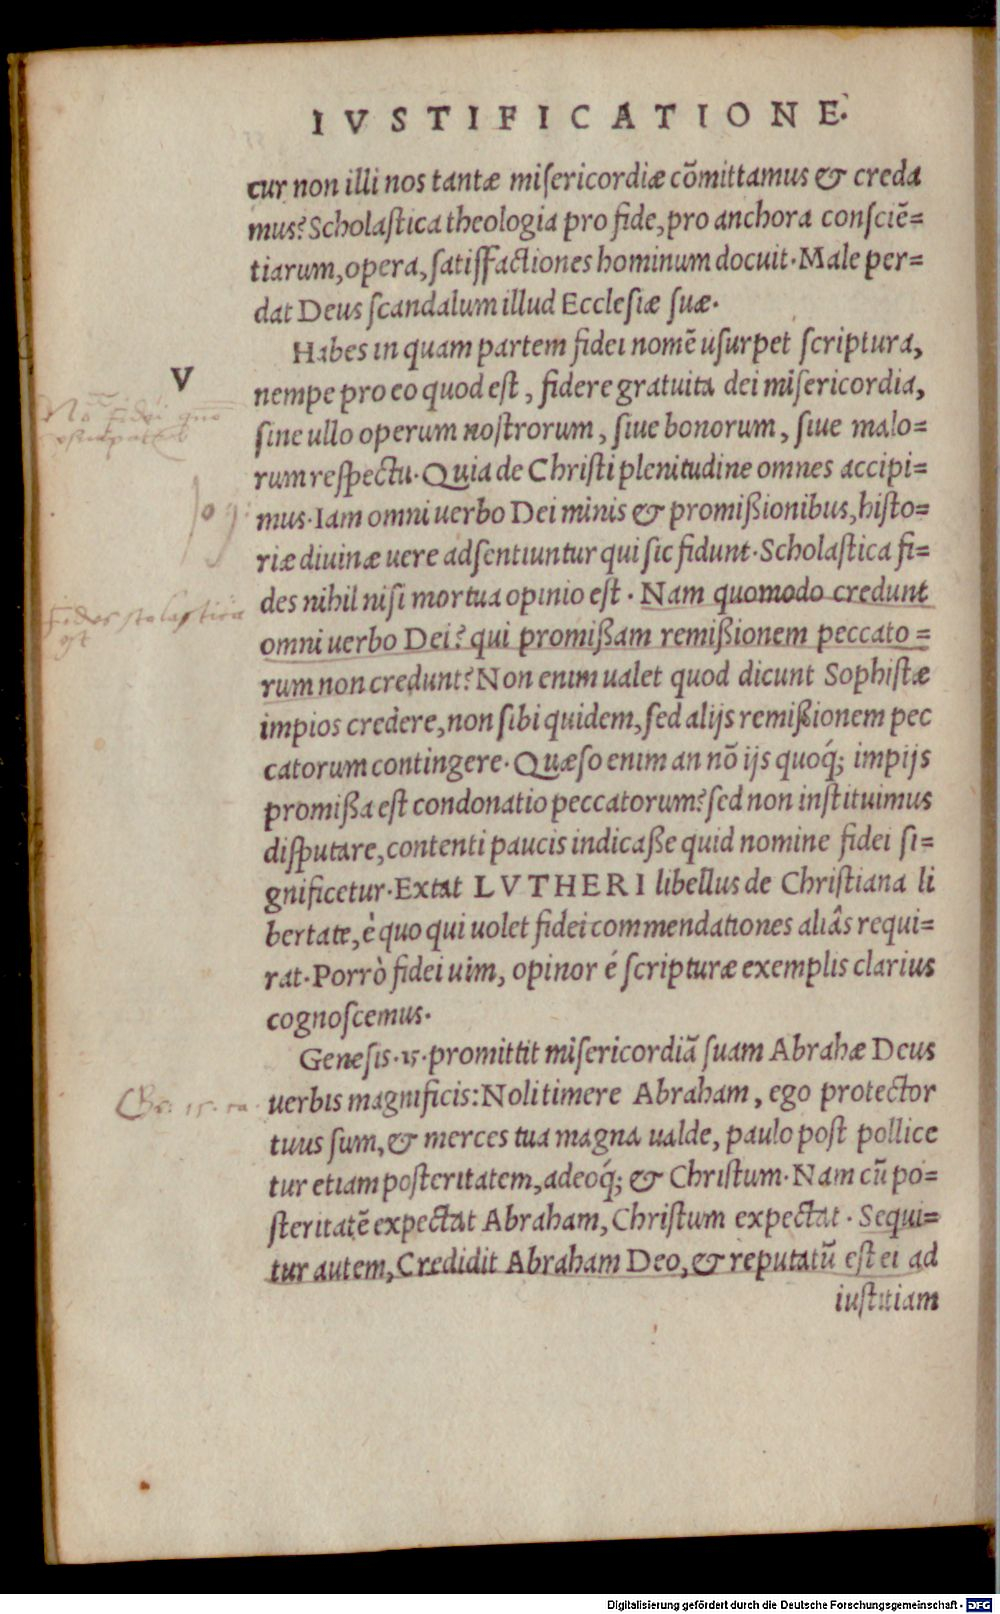 IVSTIFICATIONE.
cur non illi nos tantæ miſericordiæ cõmittamus & creda
mus? Scholaſtica theologia pro fide, pro anchora conſciẽ=
tiarum, opera, ſatiſfactiones hominum docuit. Male per=
dat Deus ſcandalum illud Eccleſiæ ſuæ.
Habes in quam partem fidei nomẽ uſurpet ſcriptura,
V
nempe pro eo quod eſt, fidere gratuita dei miſericordia,
ſine ullo operum noſtrorum, ſiue bonorum, ſiue malo=
rum reſpectu. Quia de Chriſti plenitudine omnes accipi=
mus. Iam omni uerbo Dei minis & promißionibus, hiſto=
riæ diuinæ uere adſentiuntur qui ſic fidunt. Scholaſtica fi=
des nihil niſi mortua opinio eſt. Nam quomodo credunt
Fides scolastica
omni uerbo Dei? qui promißam remißionem peccato=
rum non credunt? Non enim ualet quod dicunt Sophiſtæ
impios credere, non ſibi quidem, ſed alijs remißionem pec
catorum contingere. Quæſo enim an nõ ijs quoq́; impijs
promißa eſt condonatio peccatorum? ſed non inſtituimus
diſputare, contenti paucis indicaße quid nomine fidei ſi=
gnificetur. Extat LVTHERI libellus de Chriſtiana li
bertate, è quo qui uolet fidei commendationes aliâs requi=
rat. Porrò fidei uim, opinor é ſcripturæ exemplis clarius
cognoſcemus.
Geneſis. 15. promittit miſericordiã ſuam Abrahæ Deus
uerbis magnificis: Noli timere Abraham, ego protector
tuus ſum, & merces tua magna ualde, paulo poſt pollice
tur etiam poſteritatem, adeoq́; & Chriſtum. Nam cũ po=
ſteritatẽ expectat Abraham, Chriſtum expectat. Sequi=
tur autem, Credidit Abraham Deo, & reputatũ eſt ei ad
iuſtitiam
Digitalisierung gefördert durch die Deutsche Forschungsgemeinschaft - DFG